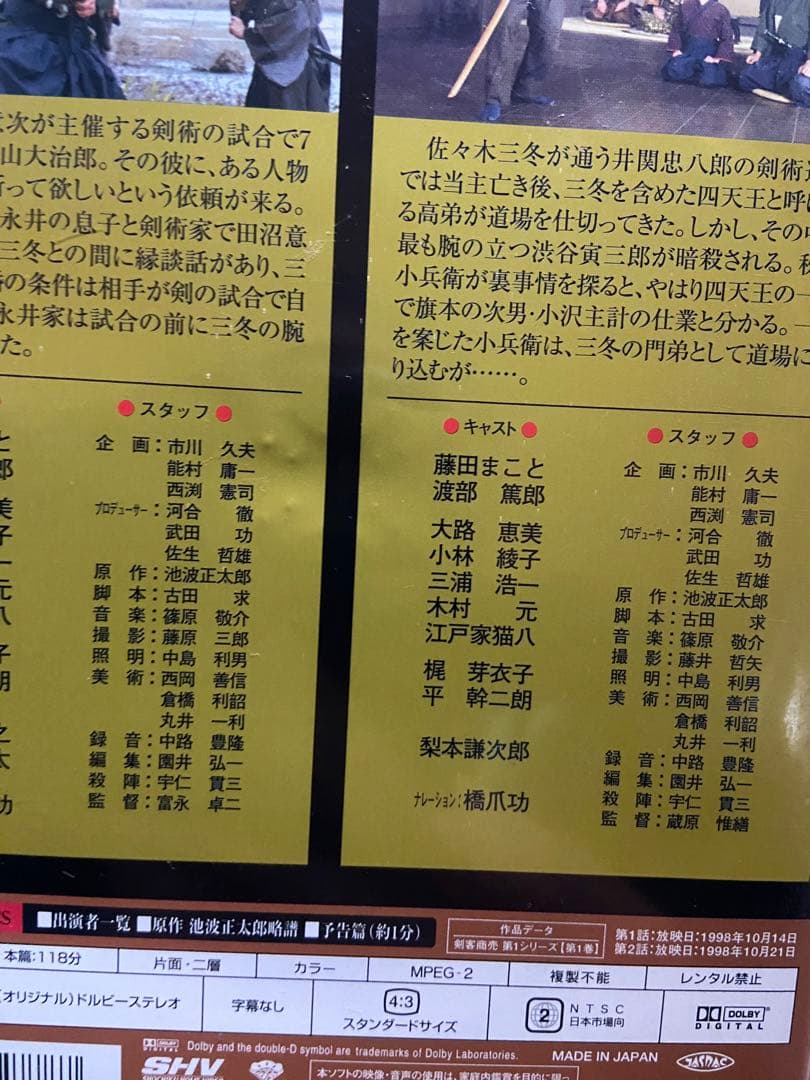 意次が主催する剣術の試合で7
山大治郎。その彼に、ある人物
折って欲しいという依頼が来る。
永井の息子と剣術家で田沼意
三冬との間に縁談話があり、三
の条件は相手が剣の試合で自
永井家は試合の前に三冬の腕
た。
●スタッフ●
企 画：市川 久夫
能村 庸一
西渕 憲司
プロデューサー：河合 徹
武田 功
佐生 哲雄
原 作：池波正太郎
脚 本：古田 求
音 楽：篠原 敬介
撮 影：藤原 三郎
照 明：中島 利男
美 術：西岡 善信
倉橋 利韶
丸井 一利
録 音：中路 豊隆
編 集：園井 弘一
殺 陣：宇仁 貫三
監 督：富永 卓二
佐々木三冬が通う井関忠八郎の剣術
では当主亡き後、三冬を含めた四天王と呼
る高弟が道場を仕切ってきた。しかし、その
最も腕の立つ渋谷寅三郎が暗殺される。秋
小兵衛が裏事情を探ると、やはり四天王の一
で旗本の次男・小沢主計の仕業と分かる。一
を案じた小兵衛は、三冬の門弟として道場に
り込むが……。
●キャスト●
藤田まこと
渡部 篤郎
大路 恵美
小林 綾子
三浦 浩一
木村 元
江戸家猫八
梶 芽衣子
平 幹二朗
梨本謙次郎
ナレーション：橋爪功
●スタッフ●
企 画：市川 久夫
能村 庸一
西渕 憲司
プロデューサー：河合 徹
武田 功
佐生 哲雄
原 作：池波正太郎
脚 本：古田 求
音 楽：篠原 敬介
撮 影：藤井 哲矢
照 明：中島 利男
美 術：西岡 善信
倉橋 利韶
丸井 一利
録 音：中路 豊隆
編 集：園井 弘一
殺 陣：宇仁 貫三
監 督：蔵原 惟繕
■出演者一覧 ■原作 池波正太郎略譜 ■予告篇（約1分）
作品データ
剣客商売 第1シリーズ【第1巻】
第1話：放映日：1998年10月14日
第2話：放映日：1998年10月21日
本篇：118分 片面・二層 カラー MPEG-2 複製不能 レンタル禁止
（オリジナル）ドルビーステレオ 字幕なし 4:3 スタンダードサイズ 2 NTSC 日本市場向 DOLBY DIGITAL
DOLBY DIGITAL Dolby and the double-D symbol are trademarks of Dolby Laboratories. MADE IN JAPAN JASRAC
SHV
SHOCHIKU HOME VIDEO
本ソフトの映像・音声の使用は、家庭内鑑賞を目的に限っ